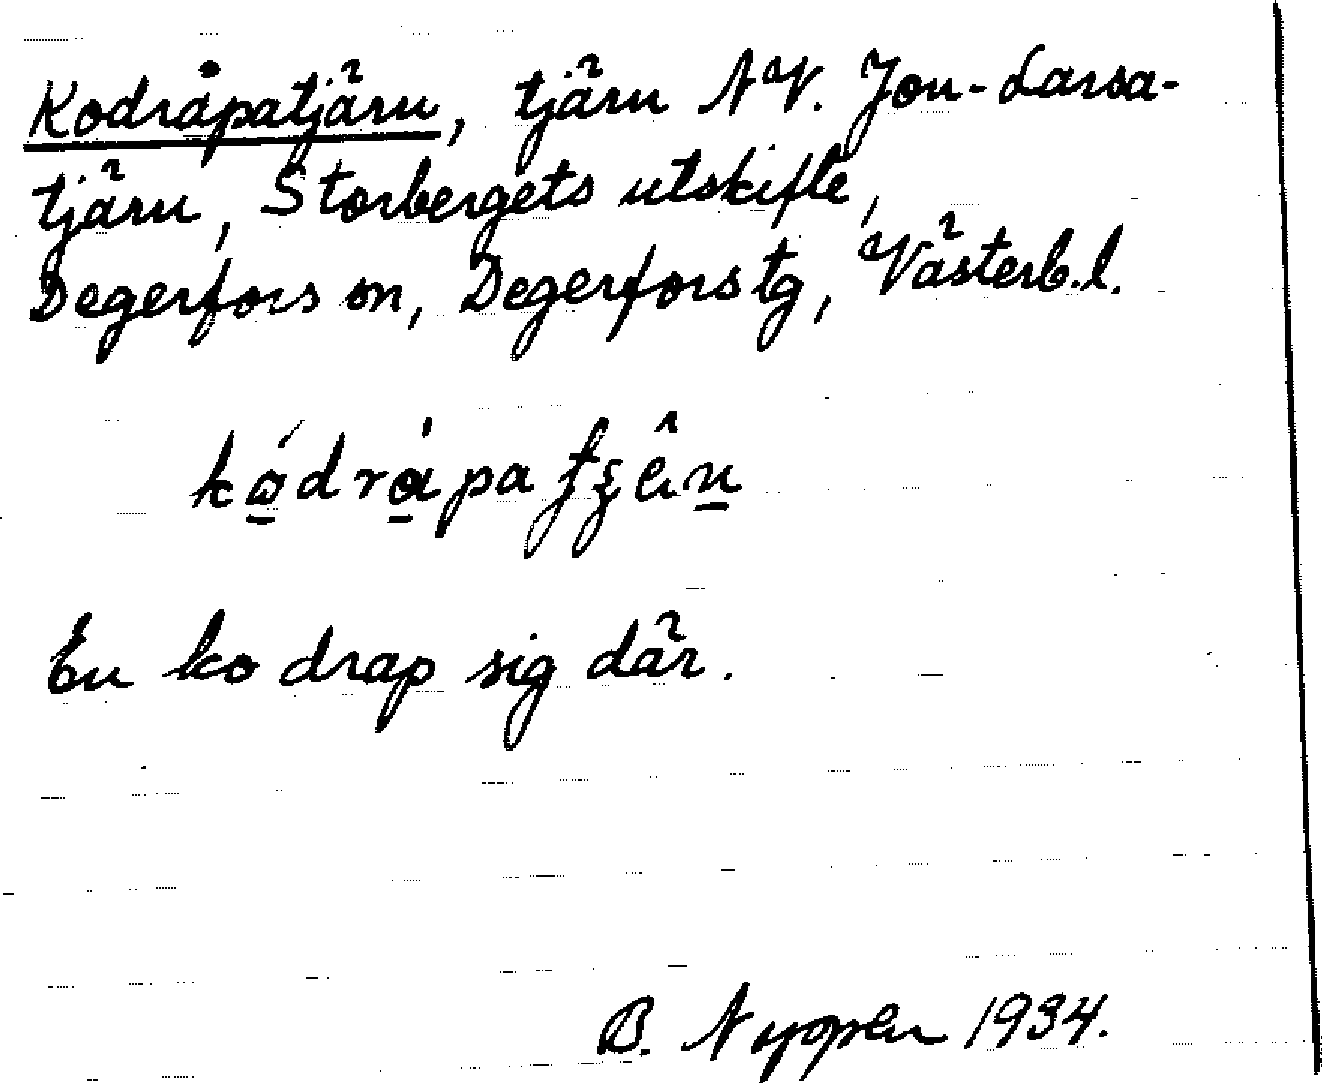 Kodråpatjärn, tjärn NV. Jon-Larsa-
tjärn, Storbergets utskifte,
Degerfors sn, Degerfors tg, Västerb.l.
En ko drap sig där.
B. Nyopen 1934.